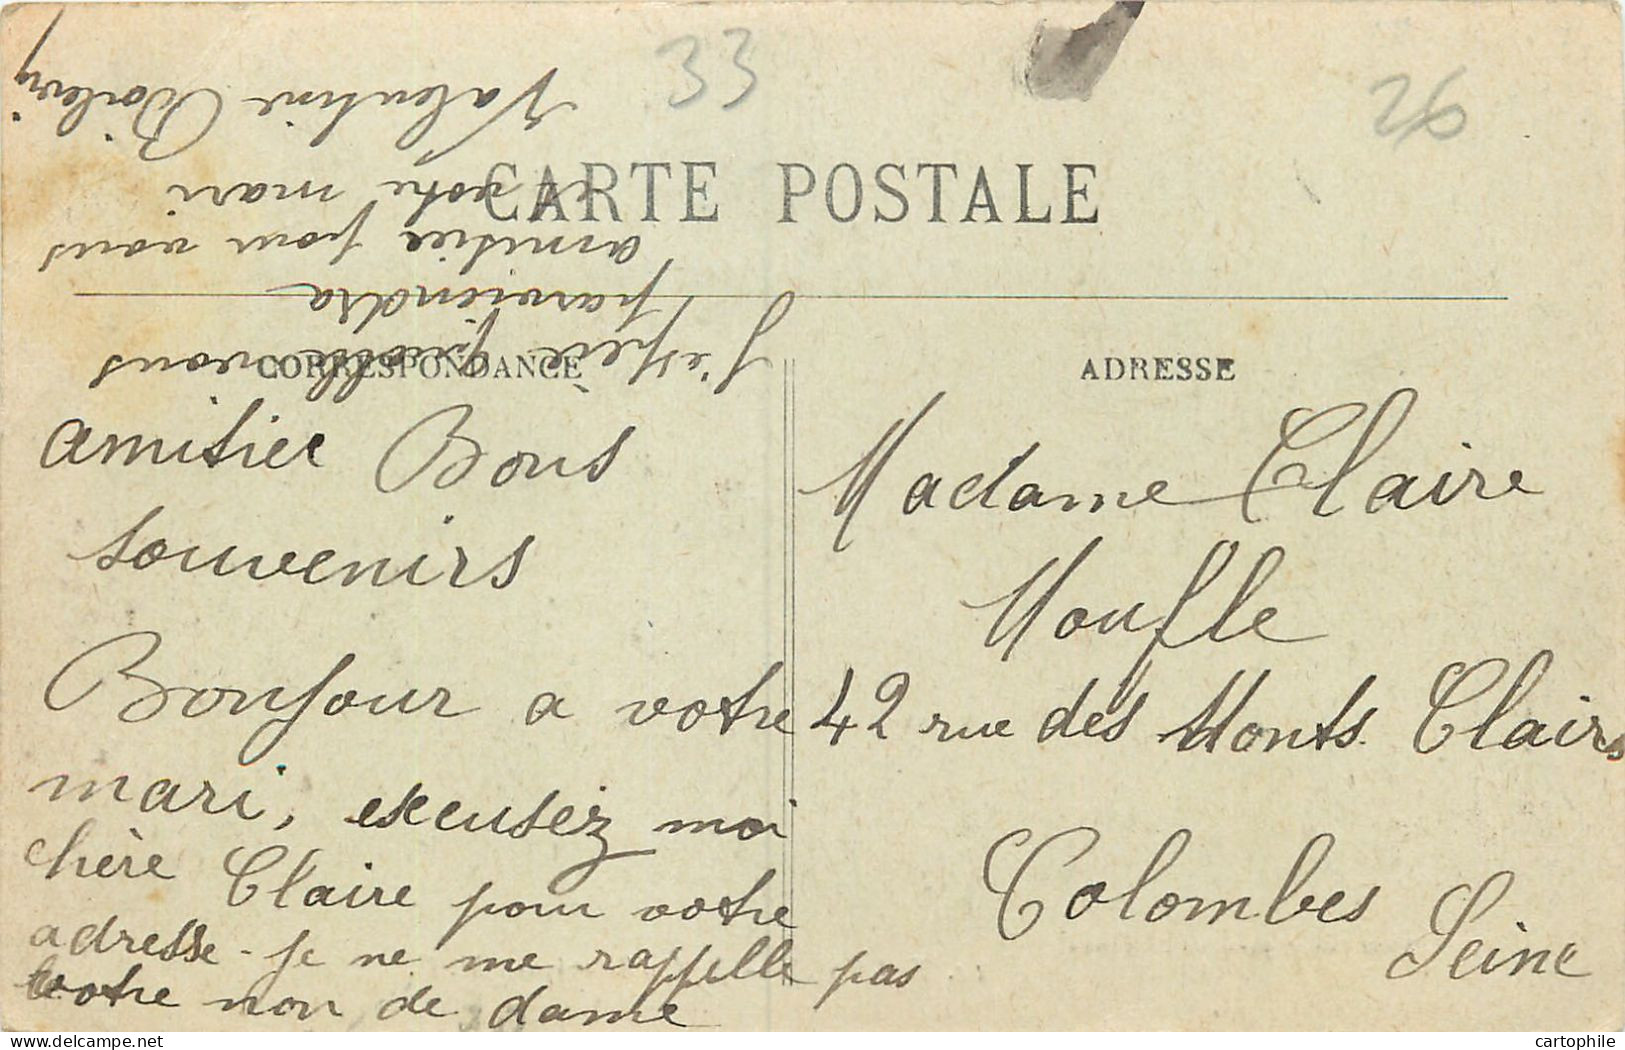 33
26
CARTE POSTALE
CORRESPONDANCE
ADRESSE
amitier Bons
souvenirs
Bonjour a votre
mari, excusez moi
chère Claire pour votre
adresse - je ne me rappelle pas
votre non de dame
J'espère qu'elle vous
parviendra
amitier pour vous
et votre mari
Valentine
Madame Claire
Moufle
42 rue des Monts Clairs
Colombes
Seine
cartophile.com